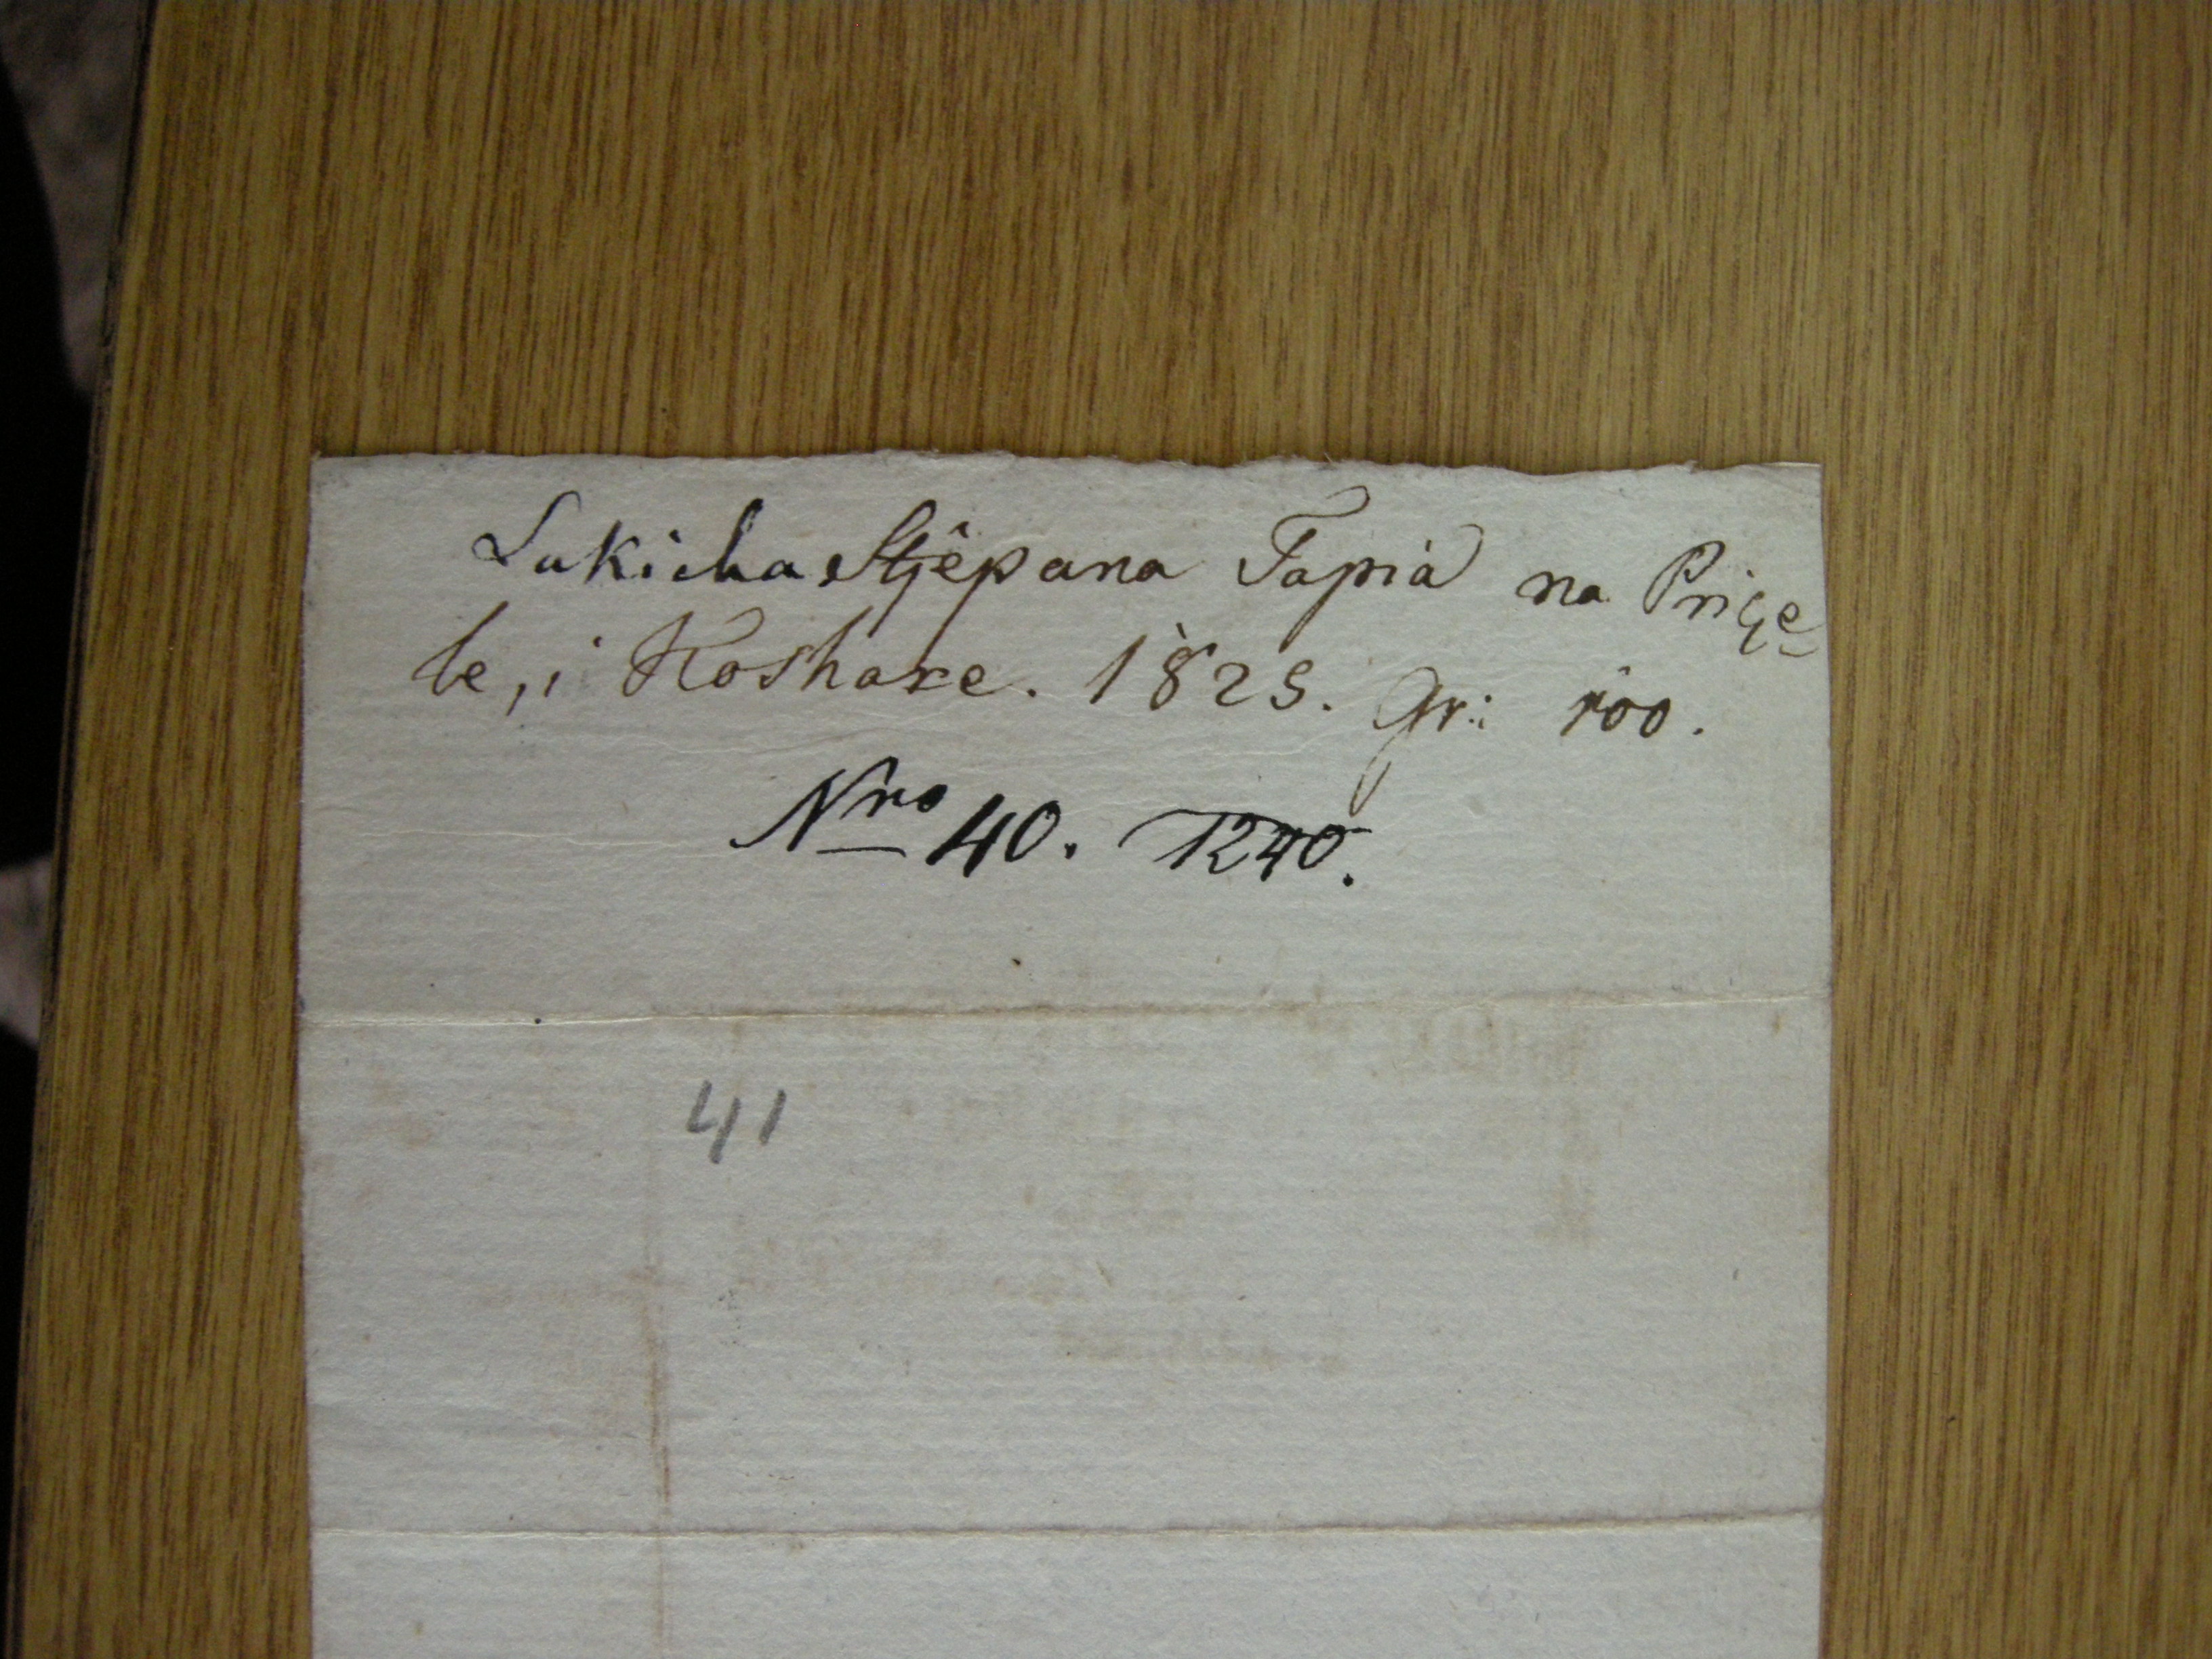 Lukicha Stjêpana Tapia na Priçe-
le, i Koshare. 1823. Gr: 100.
Nro 40. 1240.
41